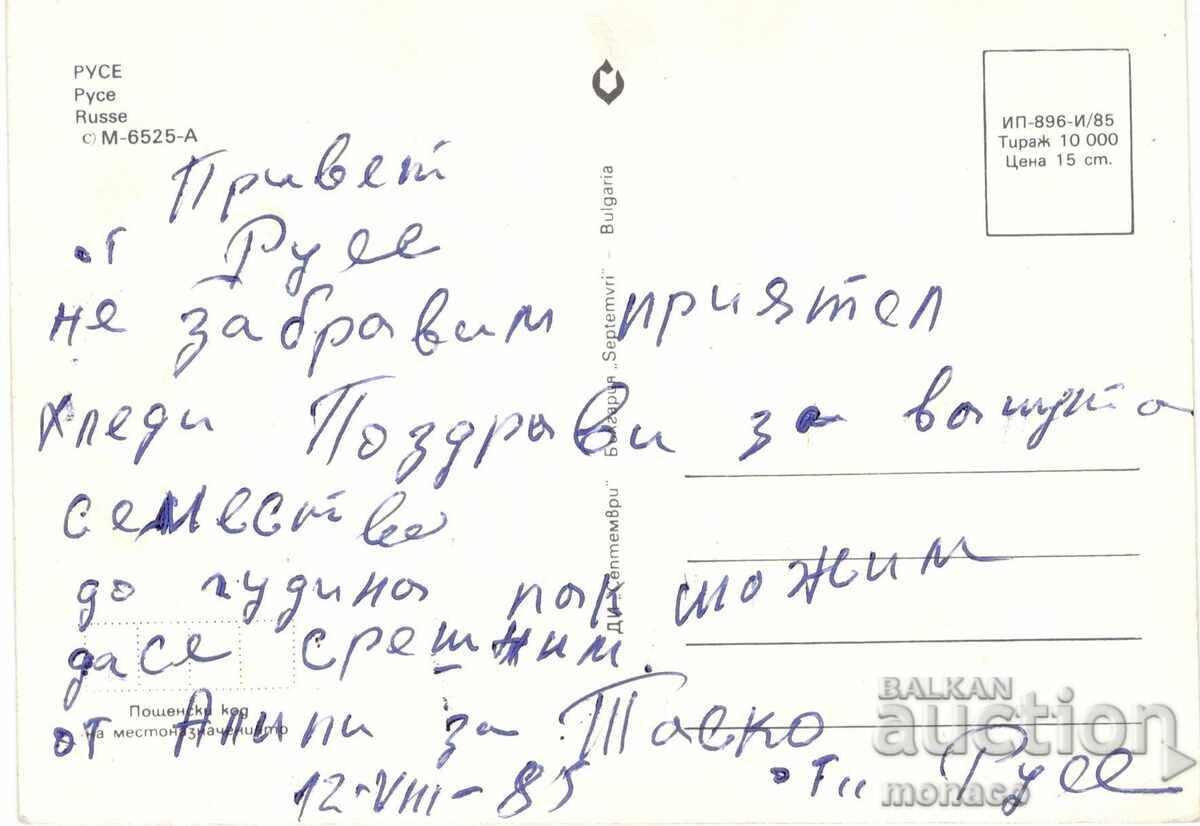 РУСЕ
Русе
Russe
С) М-6525-А
Привет
от Русе
не забравим приятел
Поздрави за вашуто
семество
до гудино пак можим
да се срешним.
от Алипи за Таско
12-VIII-85 от Русе
Пощенски код
на местоназначението
ДИ „Септември" България „Septemvri" – Bulgaria
ИП-896-И/85
Тираж 10 000
Цена 15 ст.
BALKAN
auction
monaco